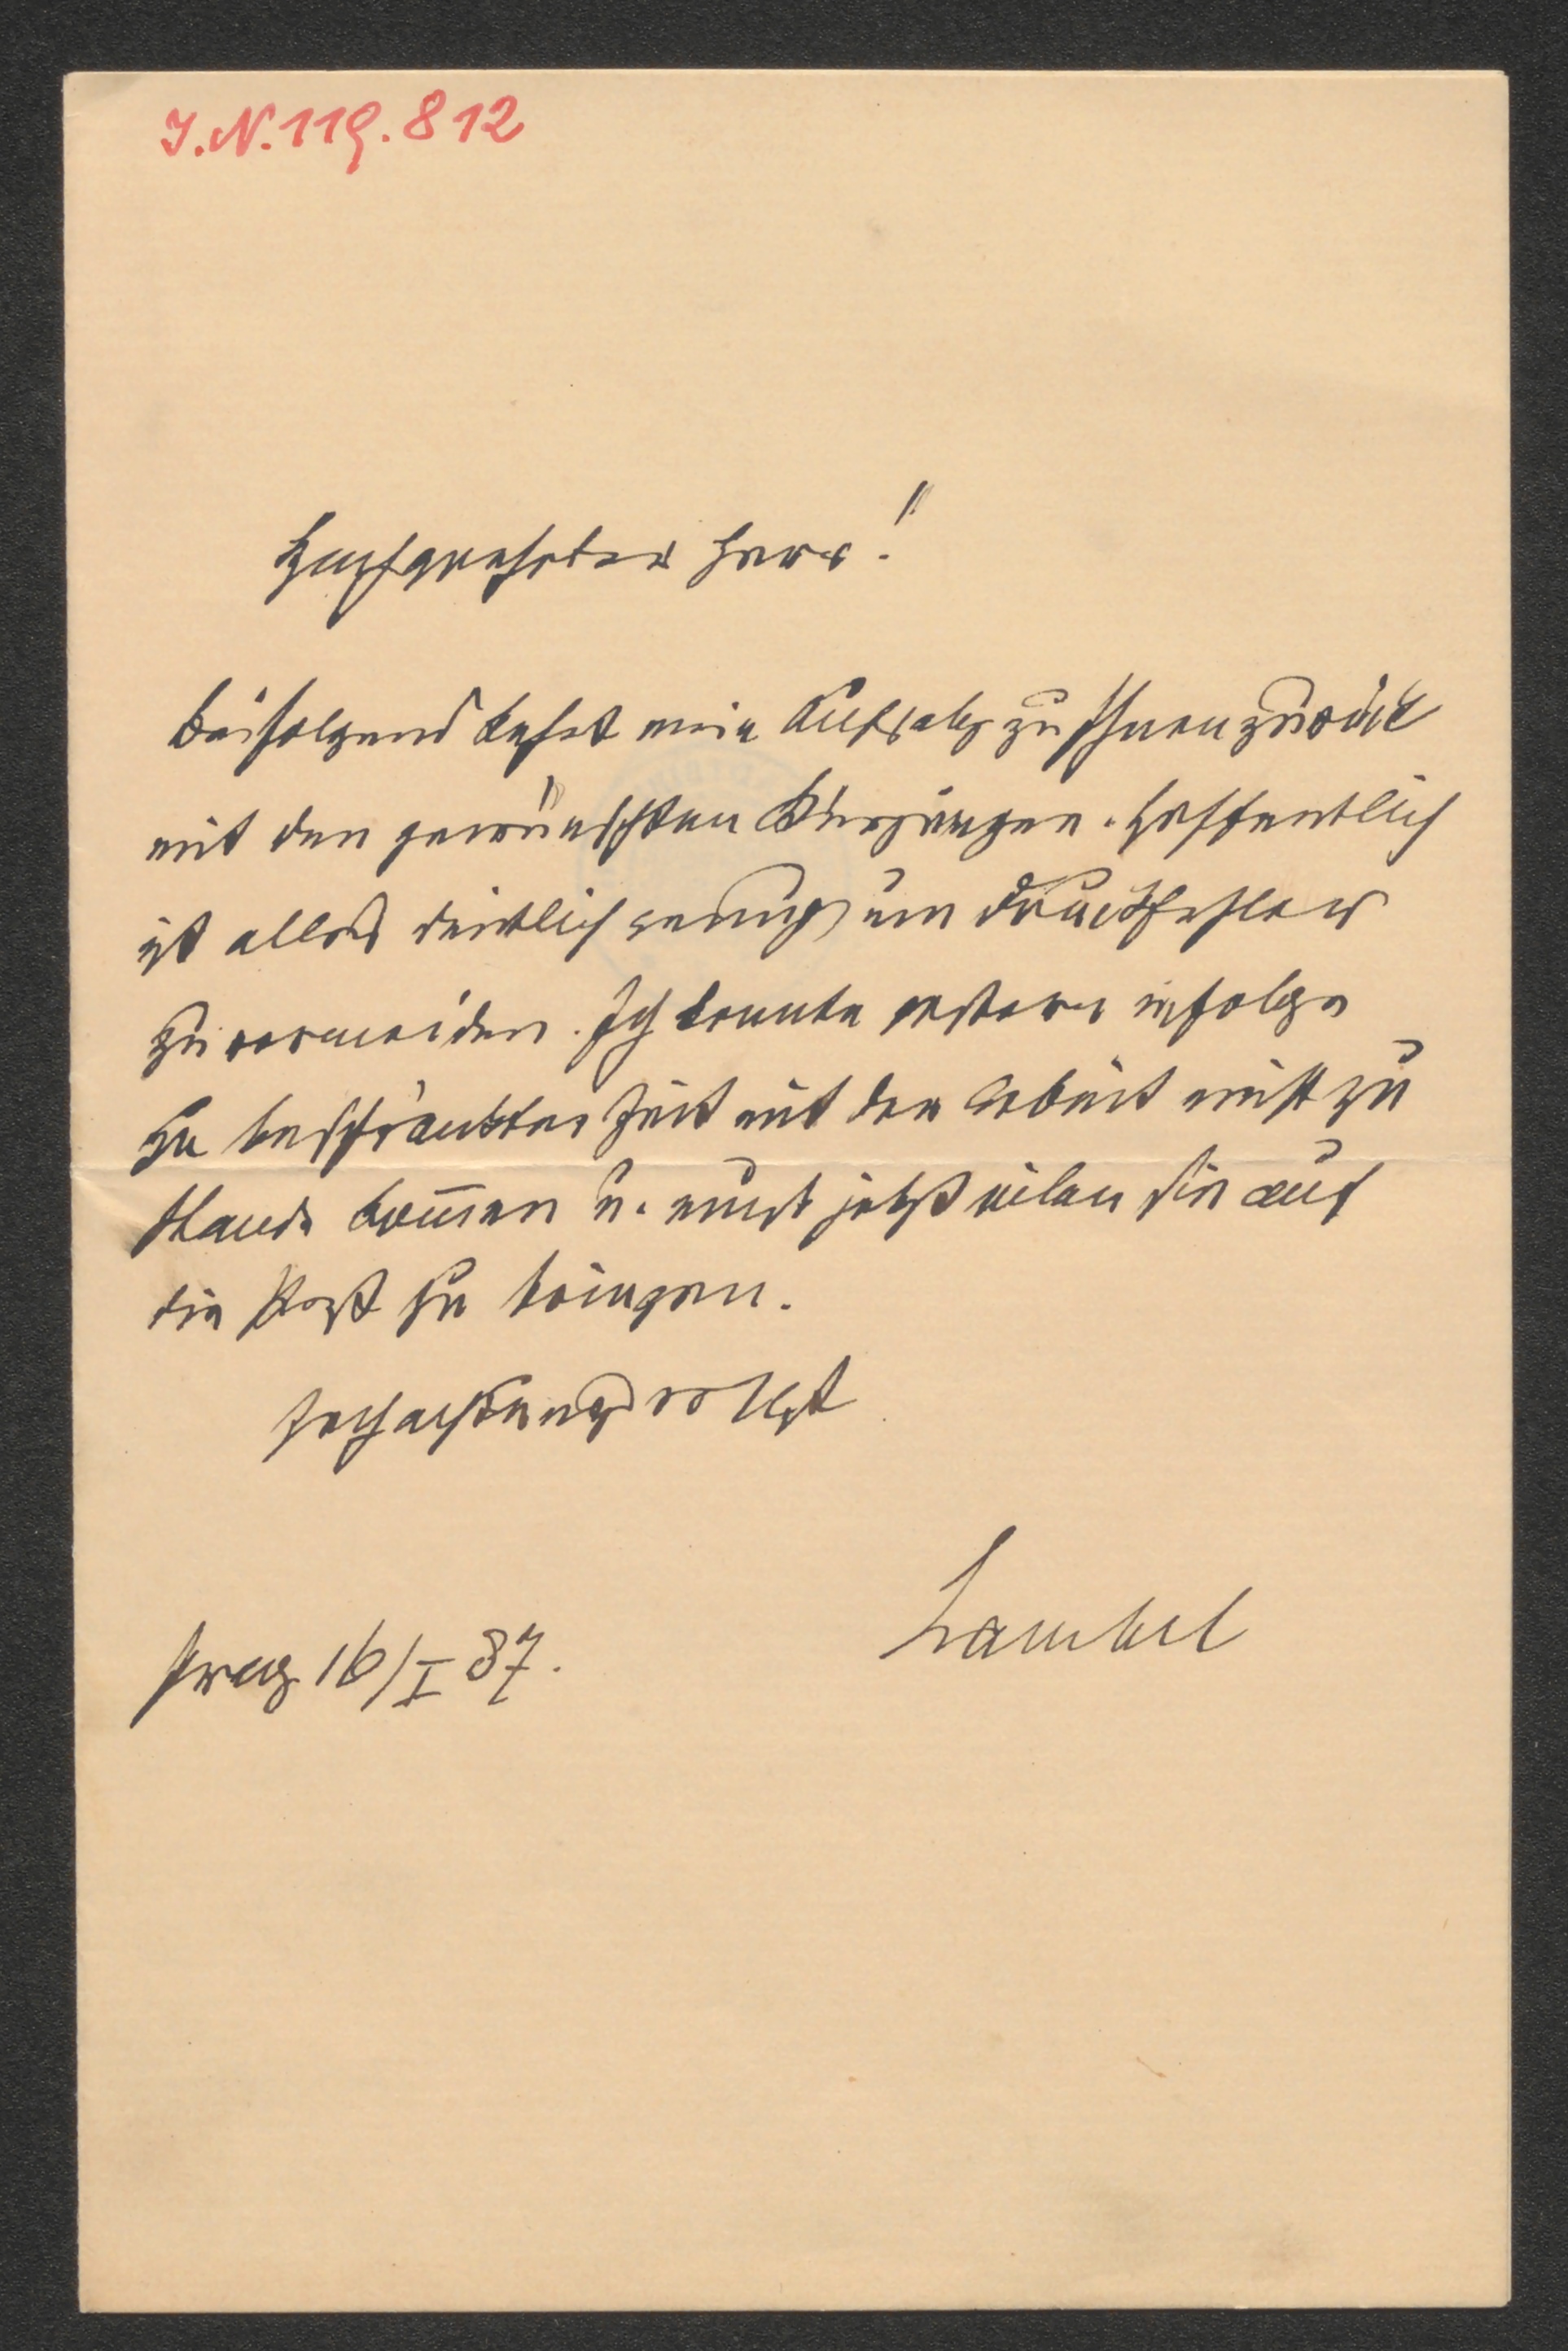 J.N. 119.812
Hochgeehrter Herr!
Beifolgend kehrt mein Aufsatz zu Ihnen zurück
mit den gewünschten Kürzungen. Hoffentlich
ist alles deutlich genug um Druckfehler
zu vermeiden. Ich konnte gestern infolge
zu beschränkter Zeit mit der Arbeit nicht zu
stande kom̄en u. muß jetzt eilen sie auf
die Post zu bringen.
Hochachtungsvollst
Lambel
Prag 16/I 87.